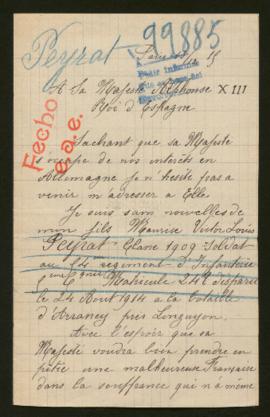 Peyrat
99885
A Sa Majesté Alphonse XIII
Roi d'Espagne
Fecho
e.a.e.
Sachant que Sa Majesté
s'occupe de nos intérêts en
Allemagne je n'hésite pas a
venir m'adresser a Elle.
Je suis sans nouvelles de
mon fils Maurice Victor Louis
Peyrat - Classe 1909 - Soldat
au 14 régiment d'Infanterie
Cie Matricule disparu
le 24 Août 1914 a la bataille
d'Arrancy près Longuyon.
Avec l'espoir que sa
Majesté voudra bien prendre en
pitié une malheureuse Française
dans la souffrance qui n'a même